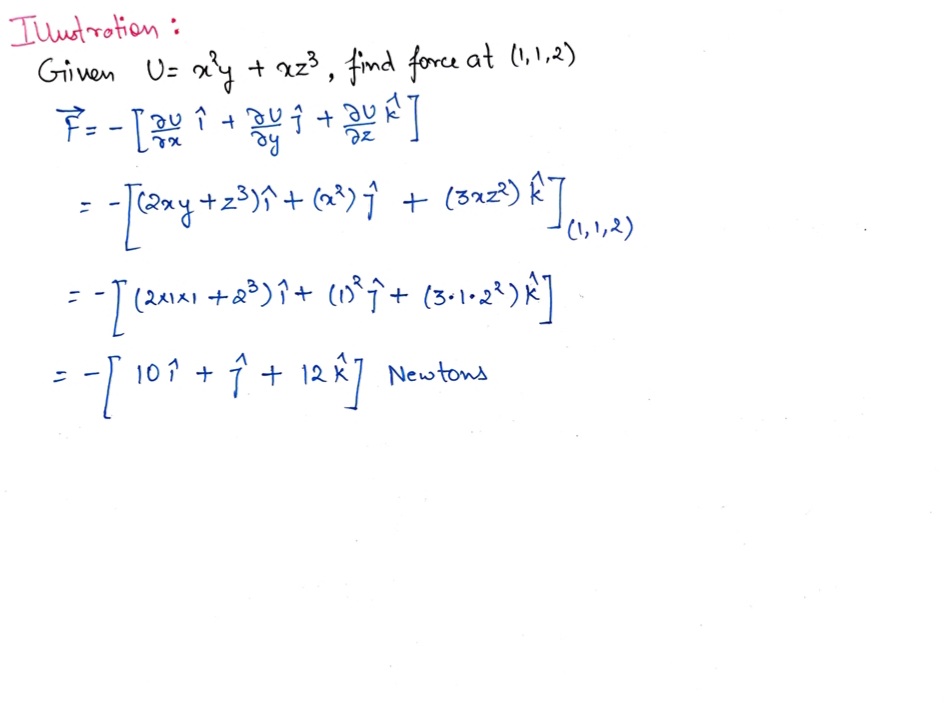 Illustration :
Given U = x²y + xz³, find force at (1,1,2)
F⃗ = - [∂U/∂x î + ∂U/∂y ĵ + ∂U/∂z k̂]
= - [(2xy + z³) î + (x²) ĵ + (3xz²) k̂](1,1,2)
= - [(2×1×1 + 2³) î + (1)² ĵ + (3·1·2²) k̂]
= - [10 î + ĵ + 12 k̂] Newtons